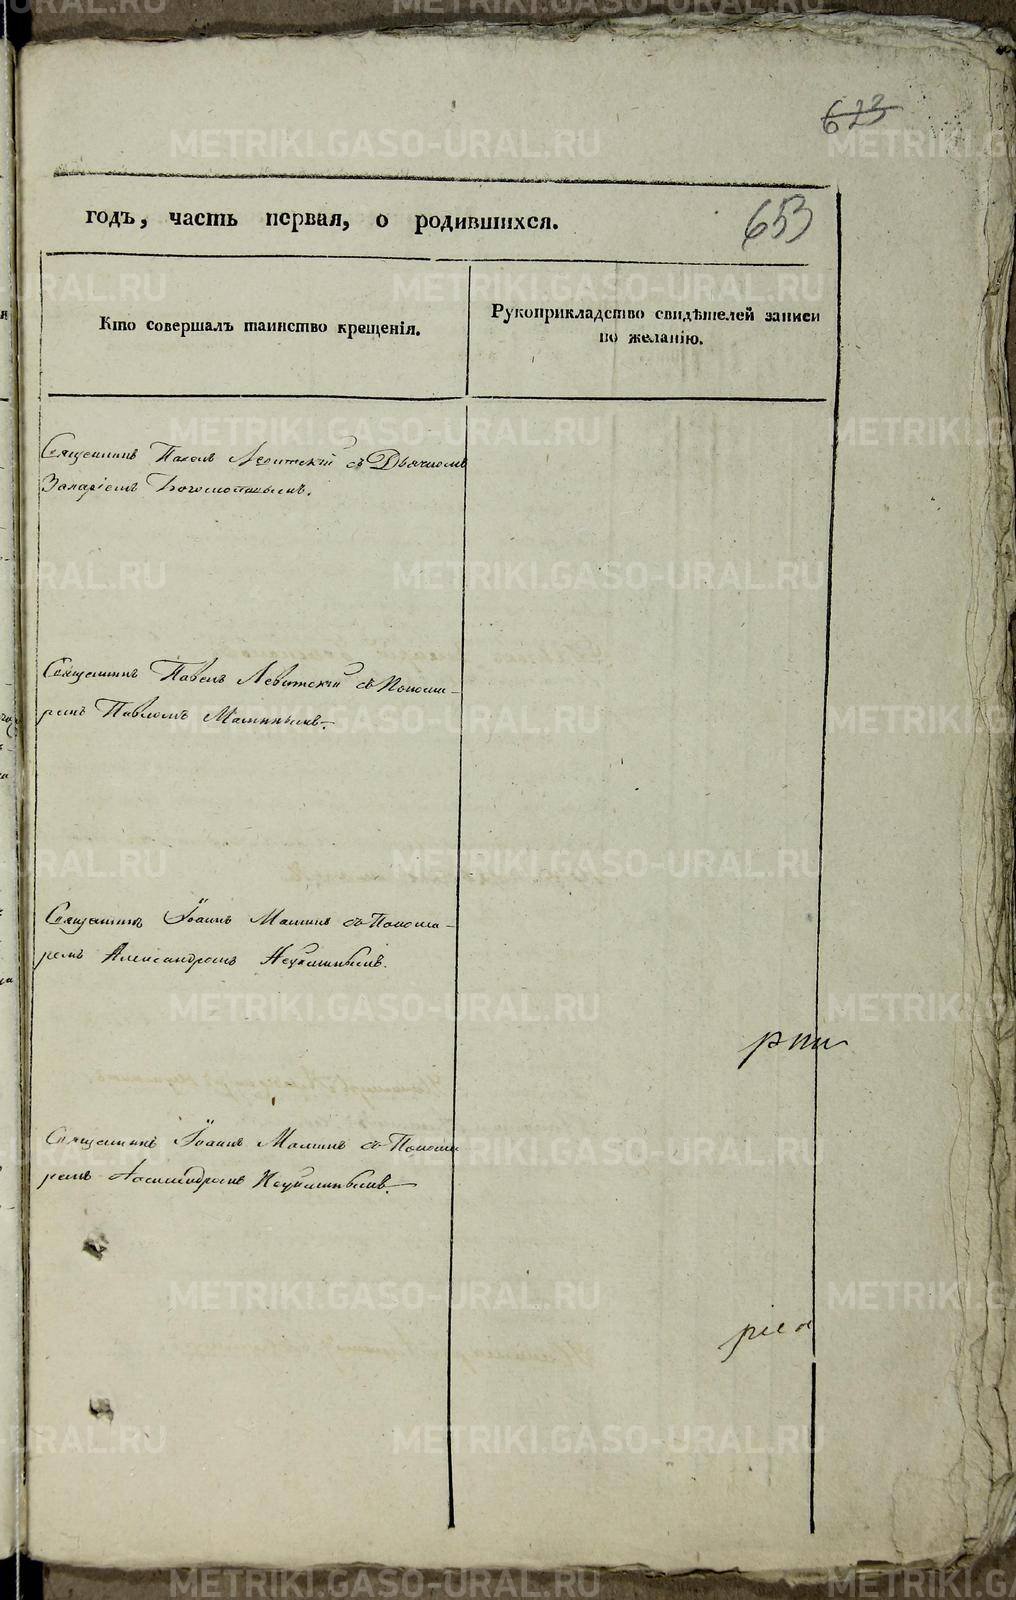 623
годъ, часть первая, о родившихся.
653
Кто совершалъ таинство крещенія.
Рукоприкладство свидѣтелей записи
по желанію.
Священникъ Павелъ Левитскій съ Дьячкомъ
Захаріемъ Богомоловымъ.
Священникъ Павелъ Левитскій съ Понома-
ремъ Павломъ Маминымъ.
Священникъ Іоаннъ Маминъ съ Понома-
ремъ Александромъ
Священникъ Іоаннъ Маминъ съ Понома
ремъ Александромъ
METRIKI.GASO-URAL.RU